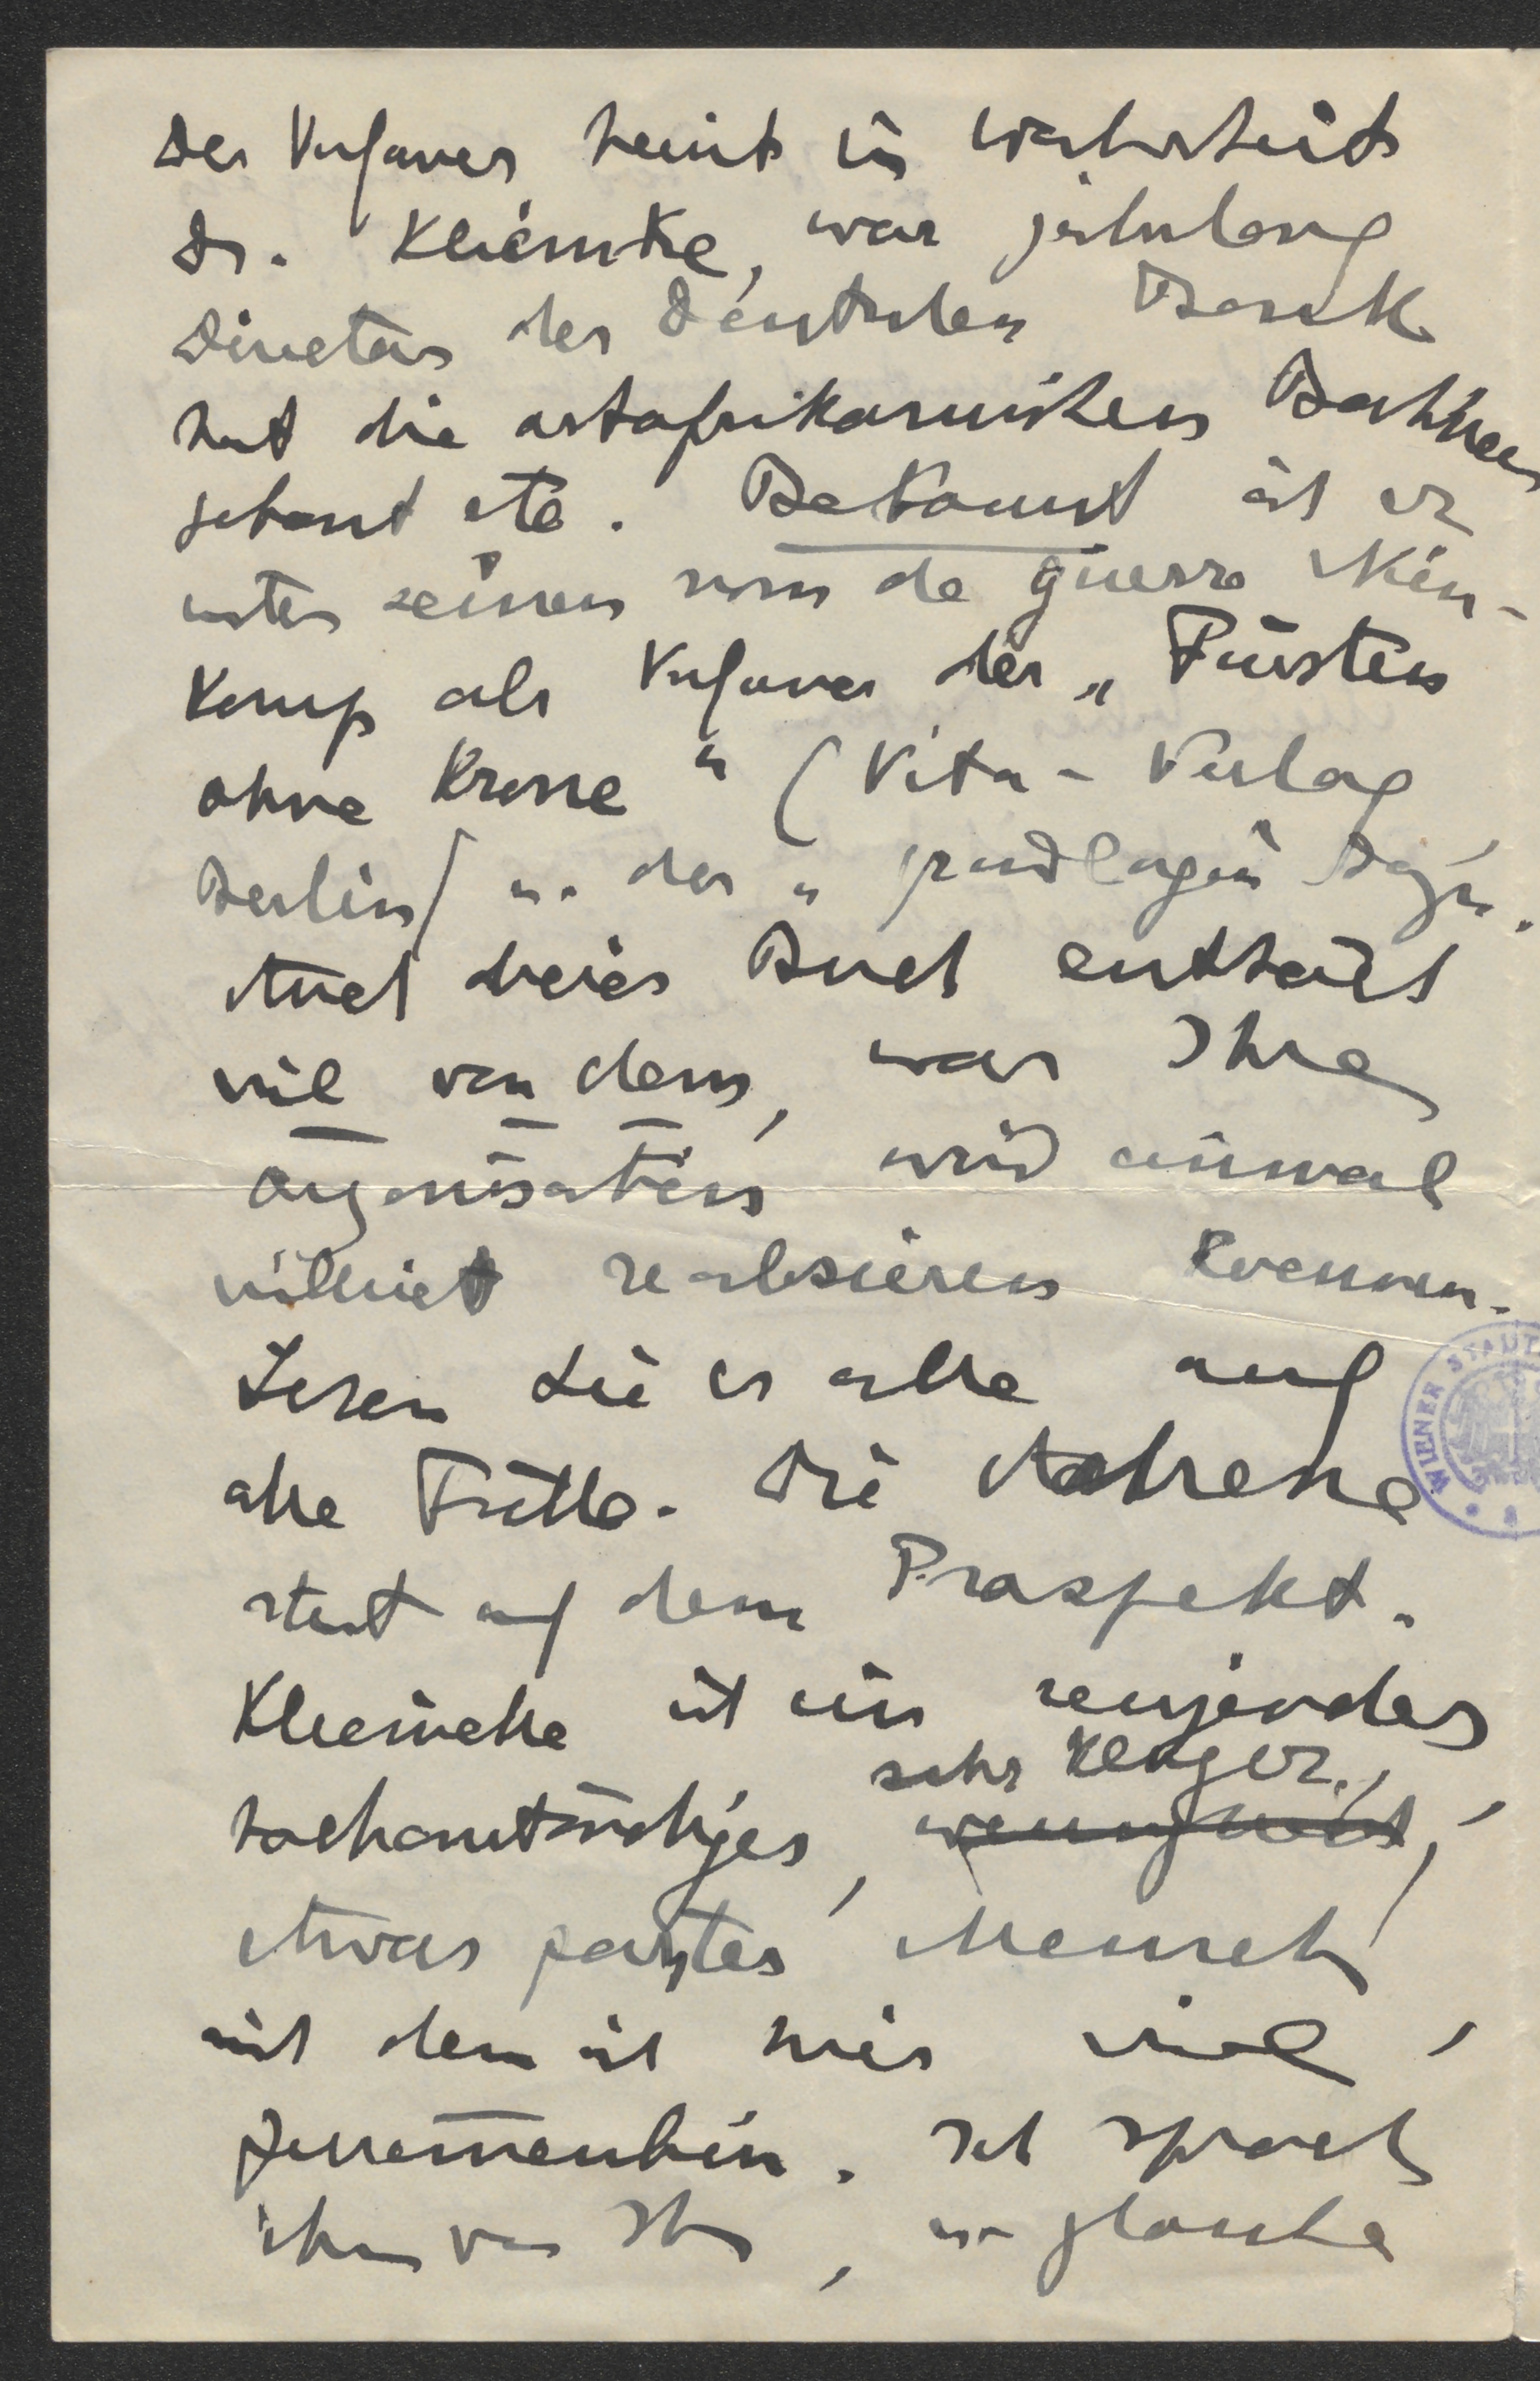 Der Verfasser heisst in Wahrheit
Dr. Kliemke, war jahrelang
Direktor der Deutschen Bank
hat die ostafrikanischen Bahnen
gebaut etc. Bekannt ist er
unter seinem nom de guerre Nien-
kamp als Verfasser der „Fürsten
ohne Krone" (Vita-Verlag
Berlin) u. der „
Auch dieses Buch enthält
viel von dem, was Ihre
Organisation wird einmal
vielleicht realisieren koennen.
Lesen Sie es alle auf
alle Fälle. Die Adresse
steht auf dem Prospekt.
Kliemke ist ein
hochanständiges, sehr kluger,
etwas Mensch
mit dem ist mir viel
gemeinsam. Ich sprach
ihm von Ihnen, u. glaube
WIENER STADT